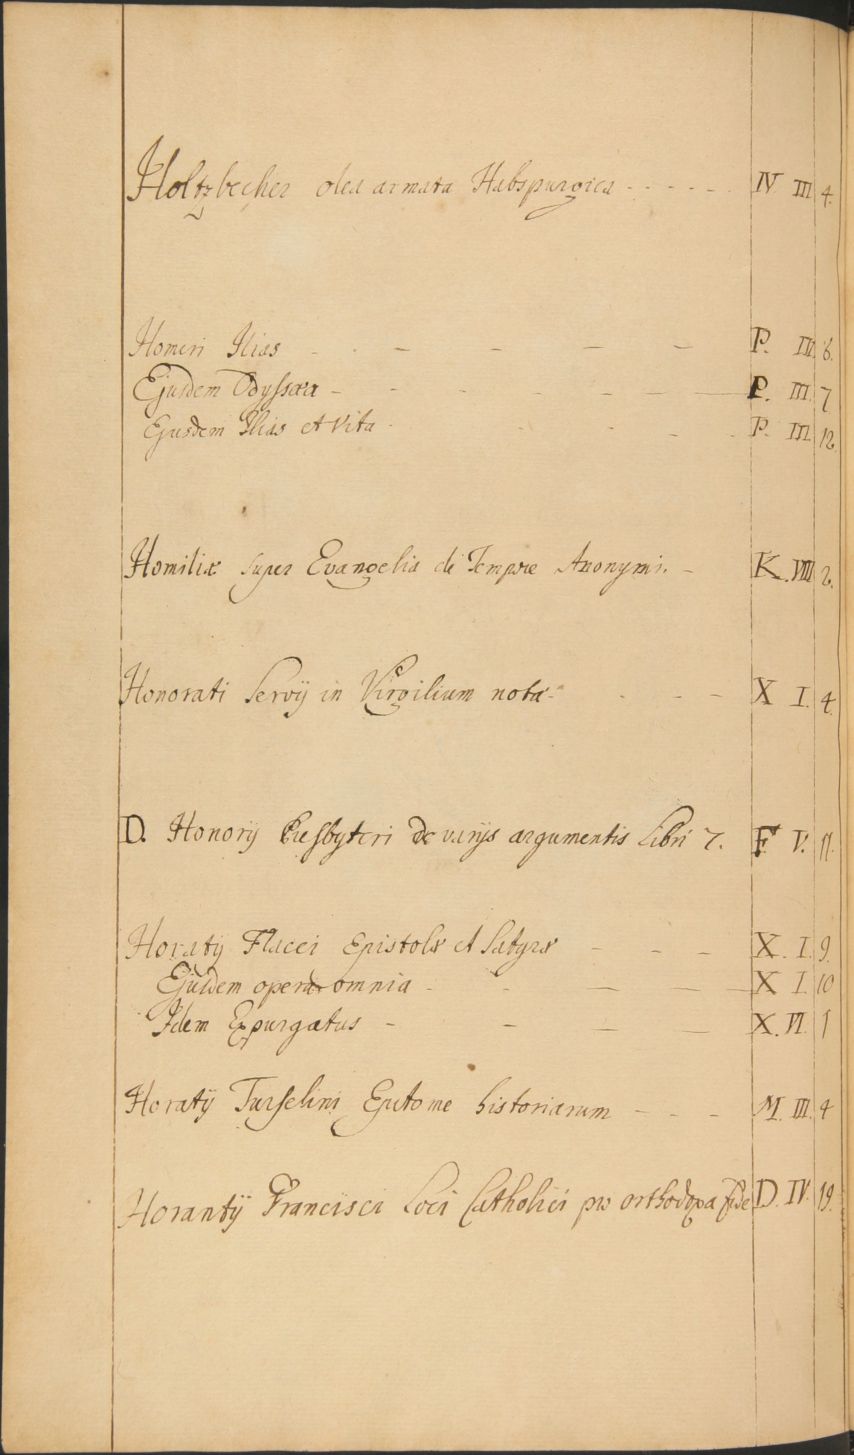 Holtzbecher olea armata Habspurgica - - - - - IV III 4.
Homeri Ilias - - - - - - P. III. 6.
Ejusdem Odyssæa - - - - - - P. III. 7
Ejusdem Ilias et Vita - - - - P. III. 12.
Homiliæ super Evangelia de Tempore Anonymi. - K. VIII 2.
Honorati Servij in Virgilium notæ - - - - X I. 4.
D. Honorij Presbyteri De varijs argumentis Libri 7. F V. 11.
Horatij Flacci Epistolæ et Satyræ - - - X. I. 9.
Ejusdem opera omnia - - - - X I. 10
Idem Expurgatus - - - - X. VI. 1
Horatij Turselini Epitome historiarum - - - M. III. 4
Horantij Francisci Loci Catholici pro orthodoxa fide D. IV. 19.